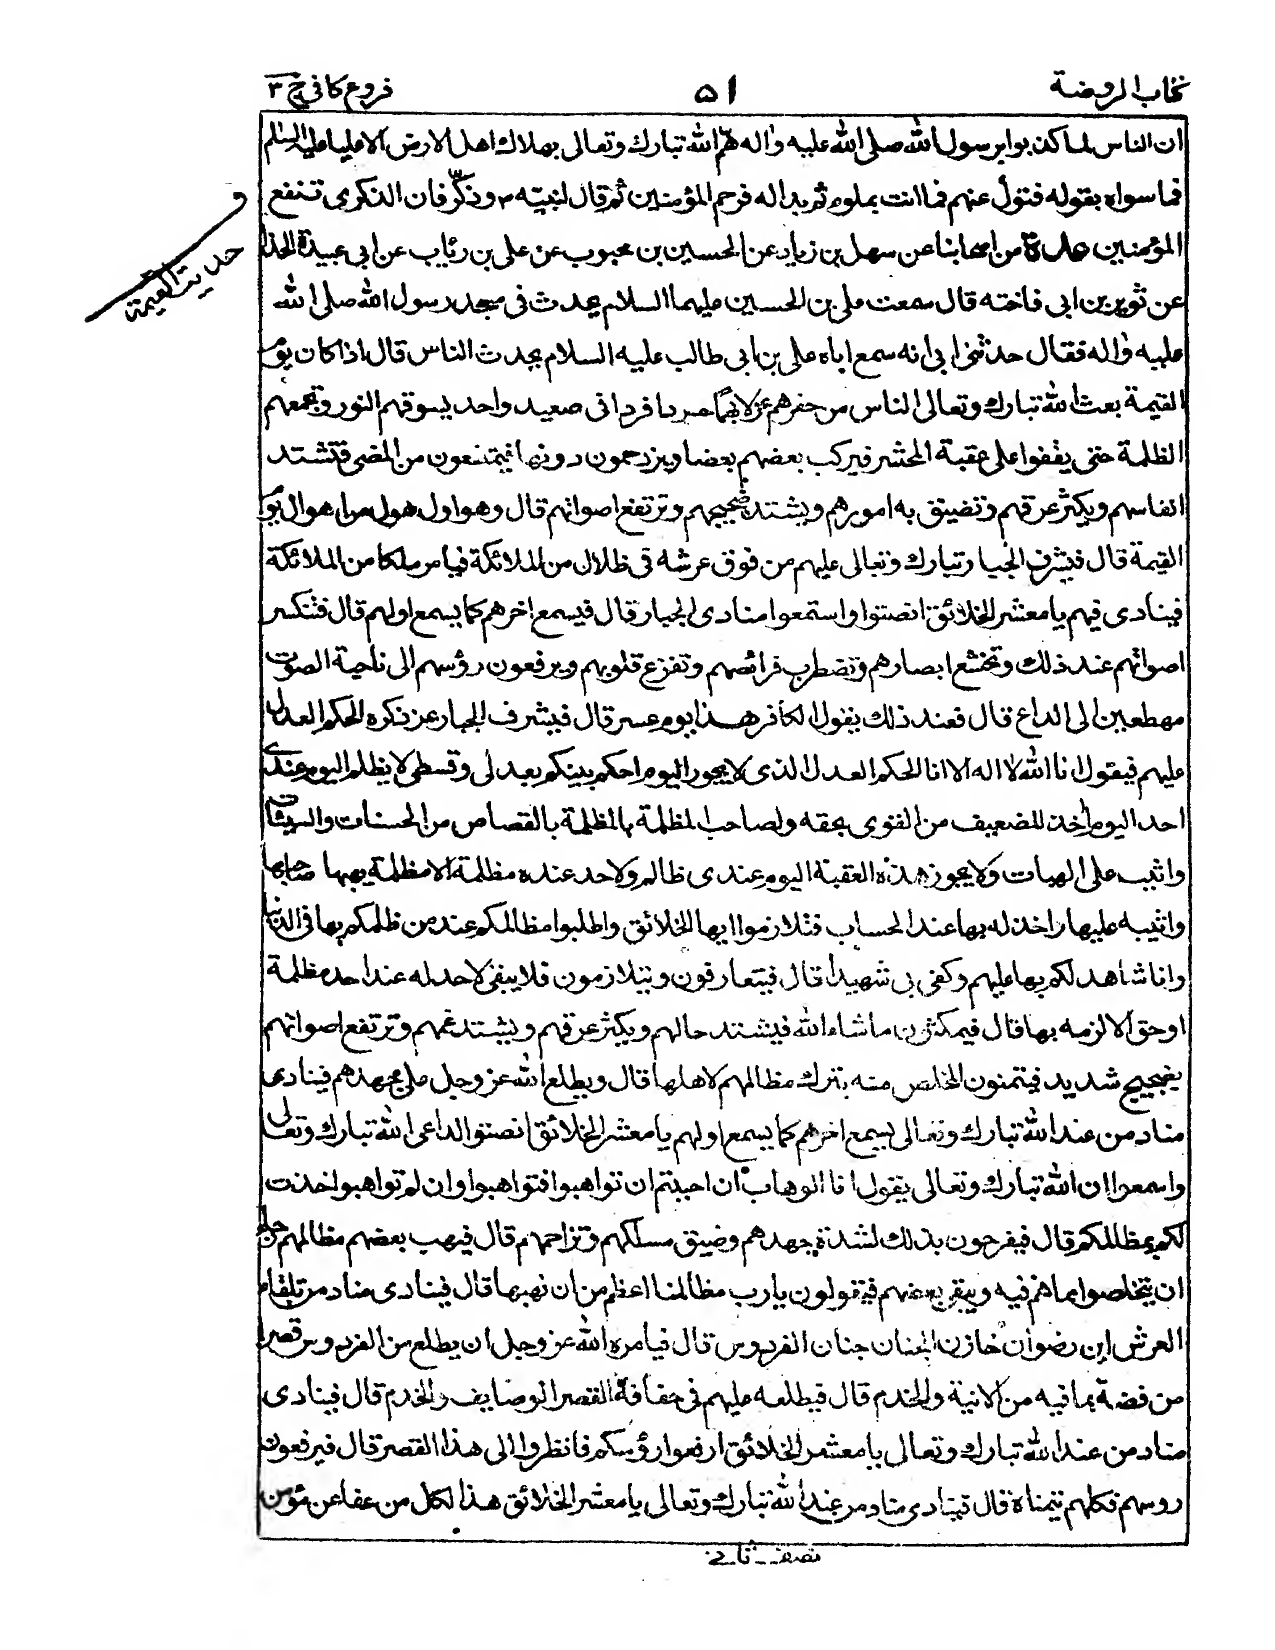 كتاب الروضة ۵۱ فروع كافي ج ۳
ان الناس لما كذبوا برسول الله صلى الله عليه واله هم الله تبارك وتعالى بهلاك اهل الارض الا عليا عليه السلام
فما سواه بقوله فتول عنهم فما انت بملوم ثم بدا له فرحم المؤمنين ثم قال لنبيه ص وذكر فان الذكرى تنفع
المؤمنين عدة من اصحابنا عن سهل بن زياد عن الحسين بن محبوب عن علي بن رئاب عن ابي عبيدة الحذا
عن ثوير بن ابي فاخته قال سمعت علي بن الحسين عليهما السلام يحدث في مسجد رسول الله صلى الله
عليه واله فقال حدثني ابي انه سمع اباه علي بن ابي طالب عليه السلام يحدث الناس قال اذا كان يوم
القيمة بعث الله تبارك وتعالى الناس من حفرهم عزلا بهما جردا مردا في صعيد واحد يسوقهم النور وتجمعهم
الظلمة حتى يقفوا على عقبة المحشر فيركب بعضهم بعضا ويزدحمون دونها فيمنعون من المضي فتشتد
انفاسهم ويكثر عرقهم وتضيق به امورهم ويشتد ضجيجهم وترتفع اصواتهم قال وهو اول هول من اهوال يوم
القيمة قال فيشرف الجبار تبارك وتعالى عليهم من فوق عرشه في ظلال من الملائكة فيامر ملكا من الملائكة
فينادى فيهم يا معشر الخلائق انصتوا واستمعوا منادى الجبار قال فيسمع اخرهم كما يسمع اولهم قال فتنكسر
اصواتهم عند ذلك وتخشع ابصارهم وتضطرب فرائصهم وتفزع قلوبهم ويرفعون رؤسهم الى ناحية الصوت
مهطعين الى الداع قال فعند ذلك يقول الكافر هذا يوم عسر قال فيشرف الجبار عز ذكره الحكم العدل
عليهم فيقول انا الله لا اله الا انا الحكم العدل الذى لا يجور اليوم احكم بينكم بعدلى وقسطى لا يظلم اليوم عندى
احد اليوم اخذ للضعيف من القوى بحقه ولصاحب المظلمة بالمظلمة بالقصاص من الحسنات والسيئات
واثيب على الهبات ولا يجوز هذه العقبة اليوم عندى ظالم ولا احد عنده مظلمة الا مظلمة يهبها صاحبها
واثيبه عليها واخذ له بها عند الحساب فتلازموا ايها الخلائق واطلبوا مظالمكم عند من ظلمكم بها في الدنيا
وانا شاهد لكم بها عليهم وكفى بى شهيدا قال فيتعارفون ويتلازمون فلا يبقى لاحد له عند احد مظلمة
او حق الا لزمه بها قال فيمكثون ما شاء الله فيشتد حالهم ويكثر عرقهم ويشتد غمهم وترتفع اصواتهم
بضجيج شديد فيتمنون المخلص منه بترك مظالمهم لاهلها قال ويطلع الله عز وجل على جهدهم فينادى
مناد من عند الله تبارك وتعالى يسمع اخرهم كما يسمع اولهم يا معشر الخلائق انصتوا لداعى الله تبارك وتعالى
واسمعوا ان الله تبارك وتعالى يقول انا الوهاب ان احببتم ان تواهبوا فتواهبوا وان لم تواهبوا اخذت
لكم بمظالمكم قال فيفرحون بذلك لشدة جهدهم وضيق مسلكهم وتزاحمهم قال فيهب بعضهم مظالمهم رجاء
ان يتخلصوا مما هم فيه ويبقى بعضهم فيقولون يا رب مظالمنا اعظم من ان نهبها قال فينادى مناد من تلقاء
العرش اين رضوان خازن الجنان جنان الفردوس قال فيامره الله عز وجل ان يطلع من الفردوس قصرا
من فضة بما فيه من الانية والخدم قال فيطلعه عليهم في حفافة القصر الوصايف والخدم قال فينادى
مناد من عند الله تبارك وتعالى يا معشر الخلائق ارفعوا رؤسكم فانظروا الى هذا القصر قال فيرفعون
روسهم فكلهم يتمناه قال فينادى مناد من عند الله تبارك وتعالى يا معشر الخلائق هذا لكل من عفا عن مؤمن
نصف ثاني
حديث القيمة